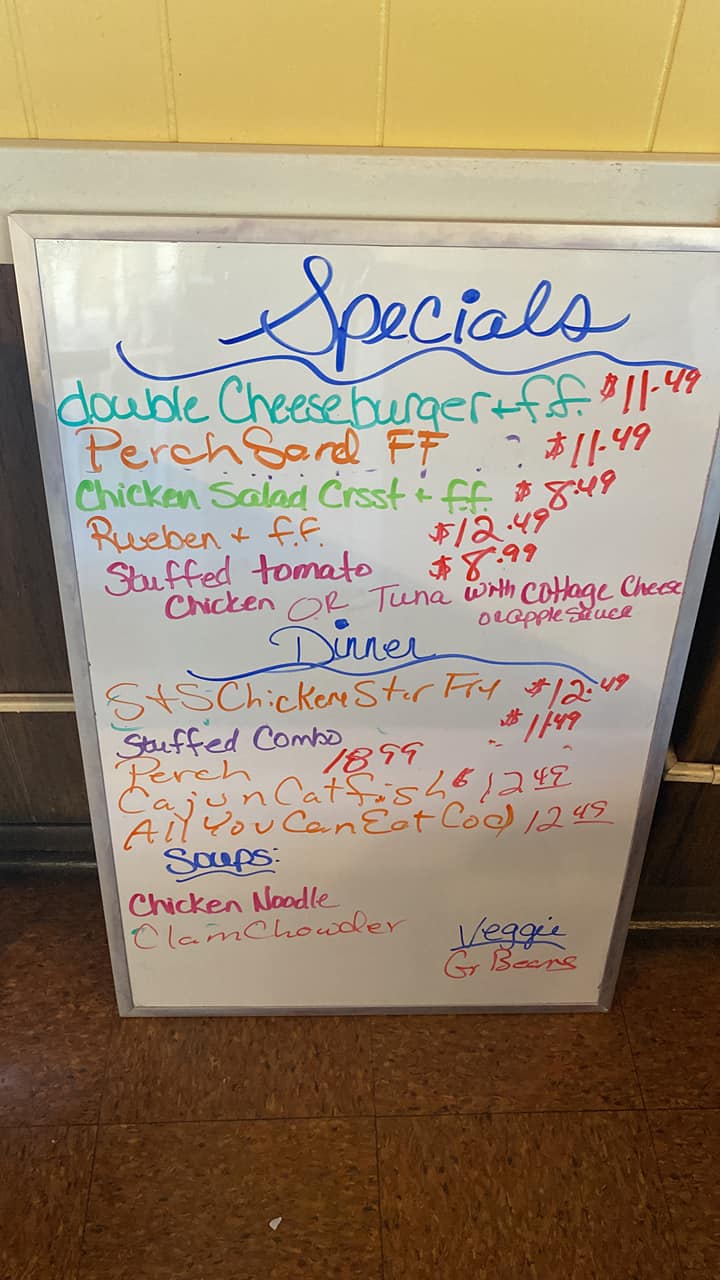 Specials
double Cheeseburger + f.f. $11.49
Perch Sand FF $11.49
Chicken Salad Crsst + f.f. $8.49
Rueben + f.f. $12.49
Stuffed tomato $8.99
Chicken OR Tuna with Cottage Cheese
or apple sauce
Dinner
S+S Chicken Stir Fry $12.49
Stuffed Combo $11.49
Perch 18.99
Cajun Catfish $12.49
All You Can Eat Cod 12.49
Soups:
Chicken Noodle
Clam Chowder
Veggie
Gr Beans